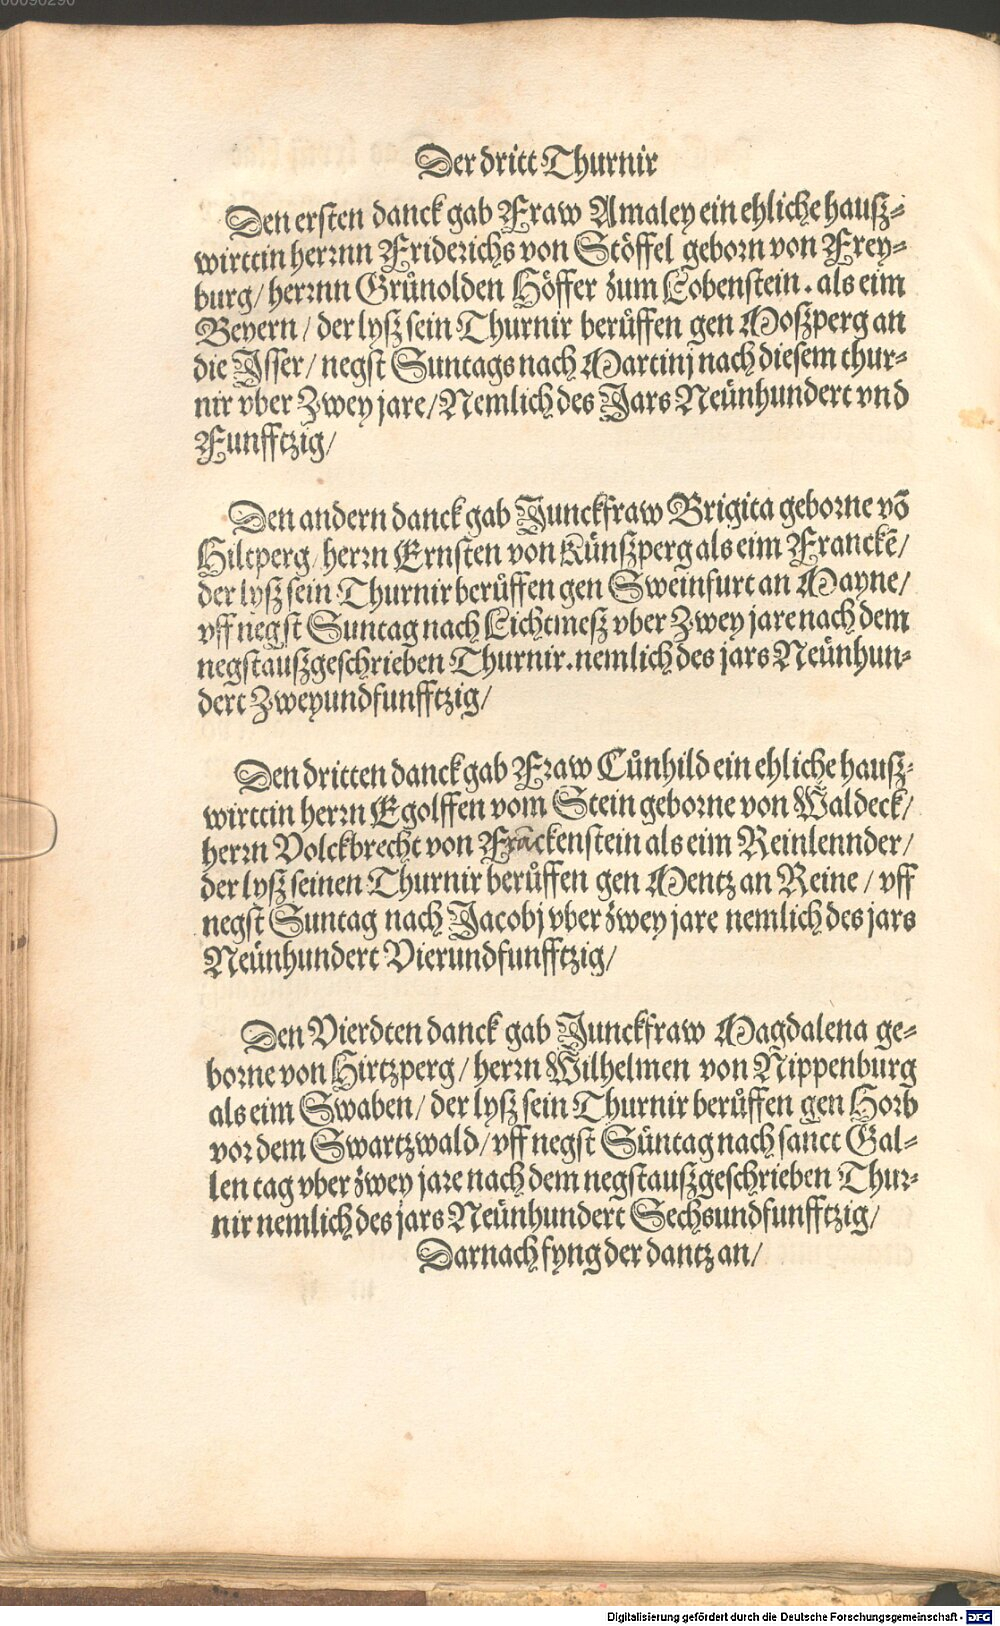 00090290
Der dritt Thurnir
Den ersten danck gab Fraw Amaley ein ehliche hausz-
wirttin herrnn Friderichs von Stöffel geborn von Frey-
burg/ herrnn Grůnolden Höffer zum Lobenstein. als eim
Beyern/ der lysz sein Thurnir berůffen gen Moszperg an
die Jsser/ negst Suntags nach Martinj nach diesem thur-
nir vber Zwey jare/ Nemlich des Jars Neünhundert vnd
Funfftzig/
Den andern danck gab Junckfraw Brigita geborne võ
Hiltperg/ herrn Ernsten von Künszperg als eim Franckẽ/
der lysz sein Thurnir berůffen gen Sweinfurt an Mayne/
vff negst Suntag nach Lichtmesz vber Zwey jare nach dem
negstauszgeschrieben Thurnir. nemlich des jars Neünhun-
dert Zweyundfunfftzig/
Den dritten danck gab Fraw Cůnhild ein ehliche hausz-
wirttin herrn Egolffen vom Stein geborne von Waldeck/
herrn Volckbrecht von Frãckenstein als eim Reinlennder/
der lysz seinen Thurnir berůffen gen Mentz an Reine/ vff
negst Suntag nach Jacobj vber zwey jare nemlich des jars
Neünhundert Vierundfunfftzig/
Den Vierdten danck gab Junckfraw Magdalena ge-
borne von Hirtzperg/ herrn Wilhelmen von Nippenburg
als eim Swaben/ der lysz sein Thurnir berůffen gen Horb
vor dem Swartzwald/ vff negst Süntag nach sanct Gal-
len tag vber zwey jare nach dem negstauszgeschrieben Thur-
nir nemlich des jars Neünhundert Sechsundfunfftzig/
Darnach fyng der dantz an/
Digitalisierung gefördert durch die Deutsche Forschungsgemeinschaft - DFG